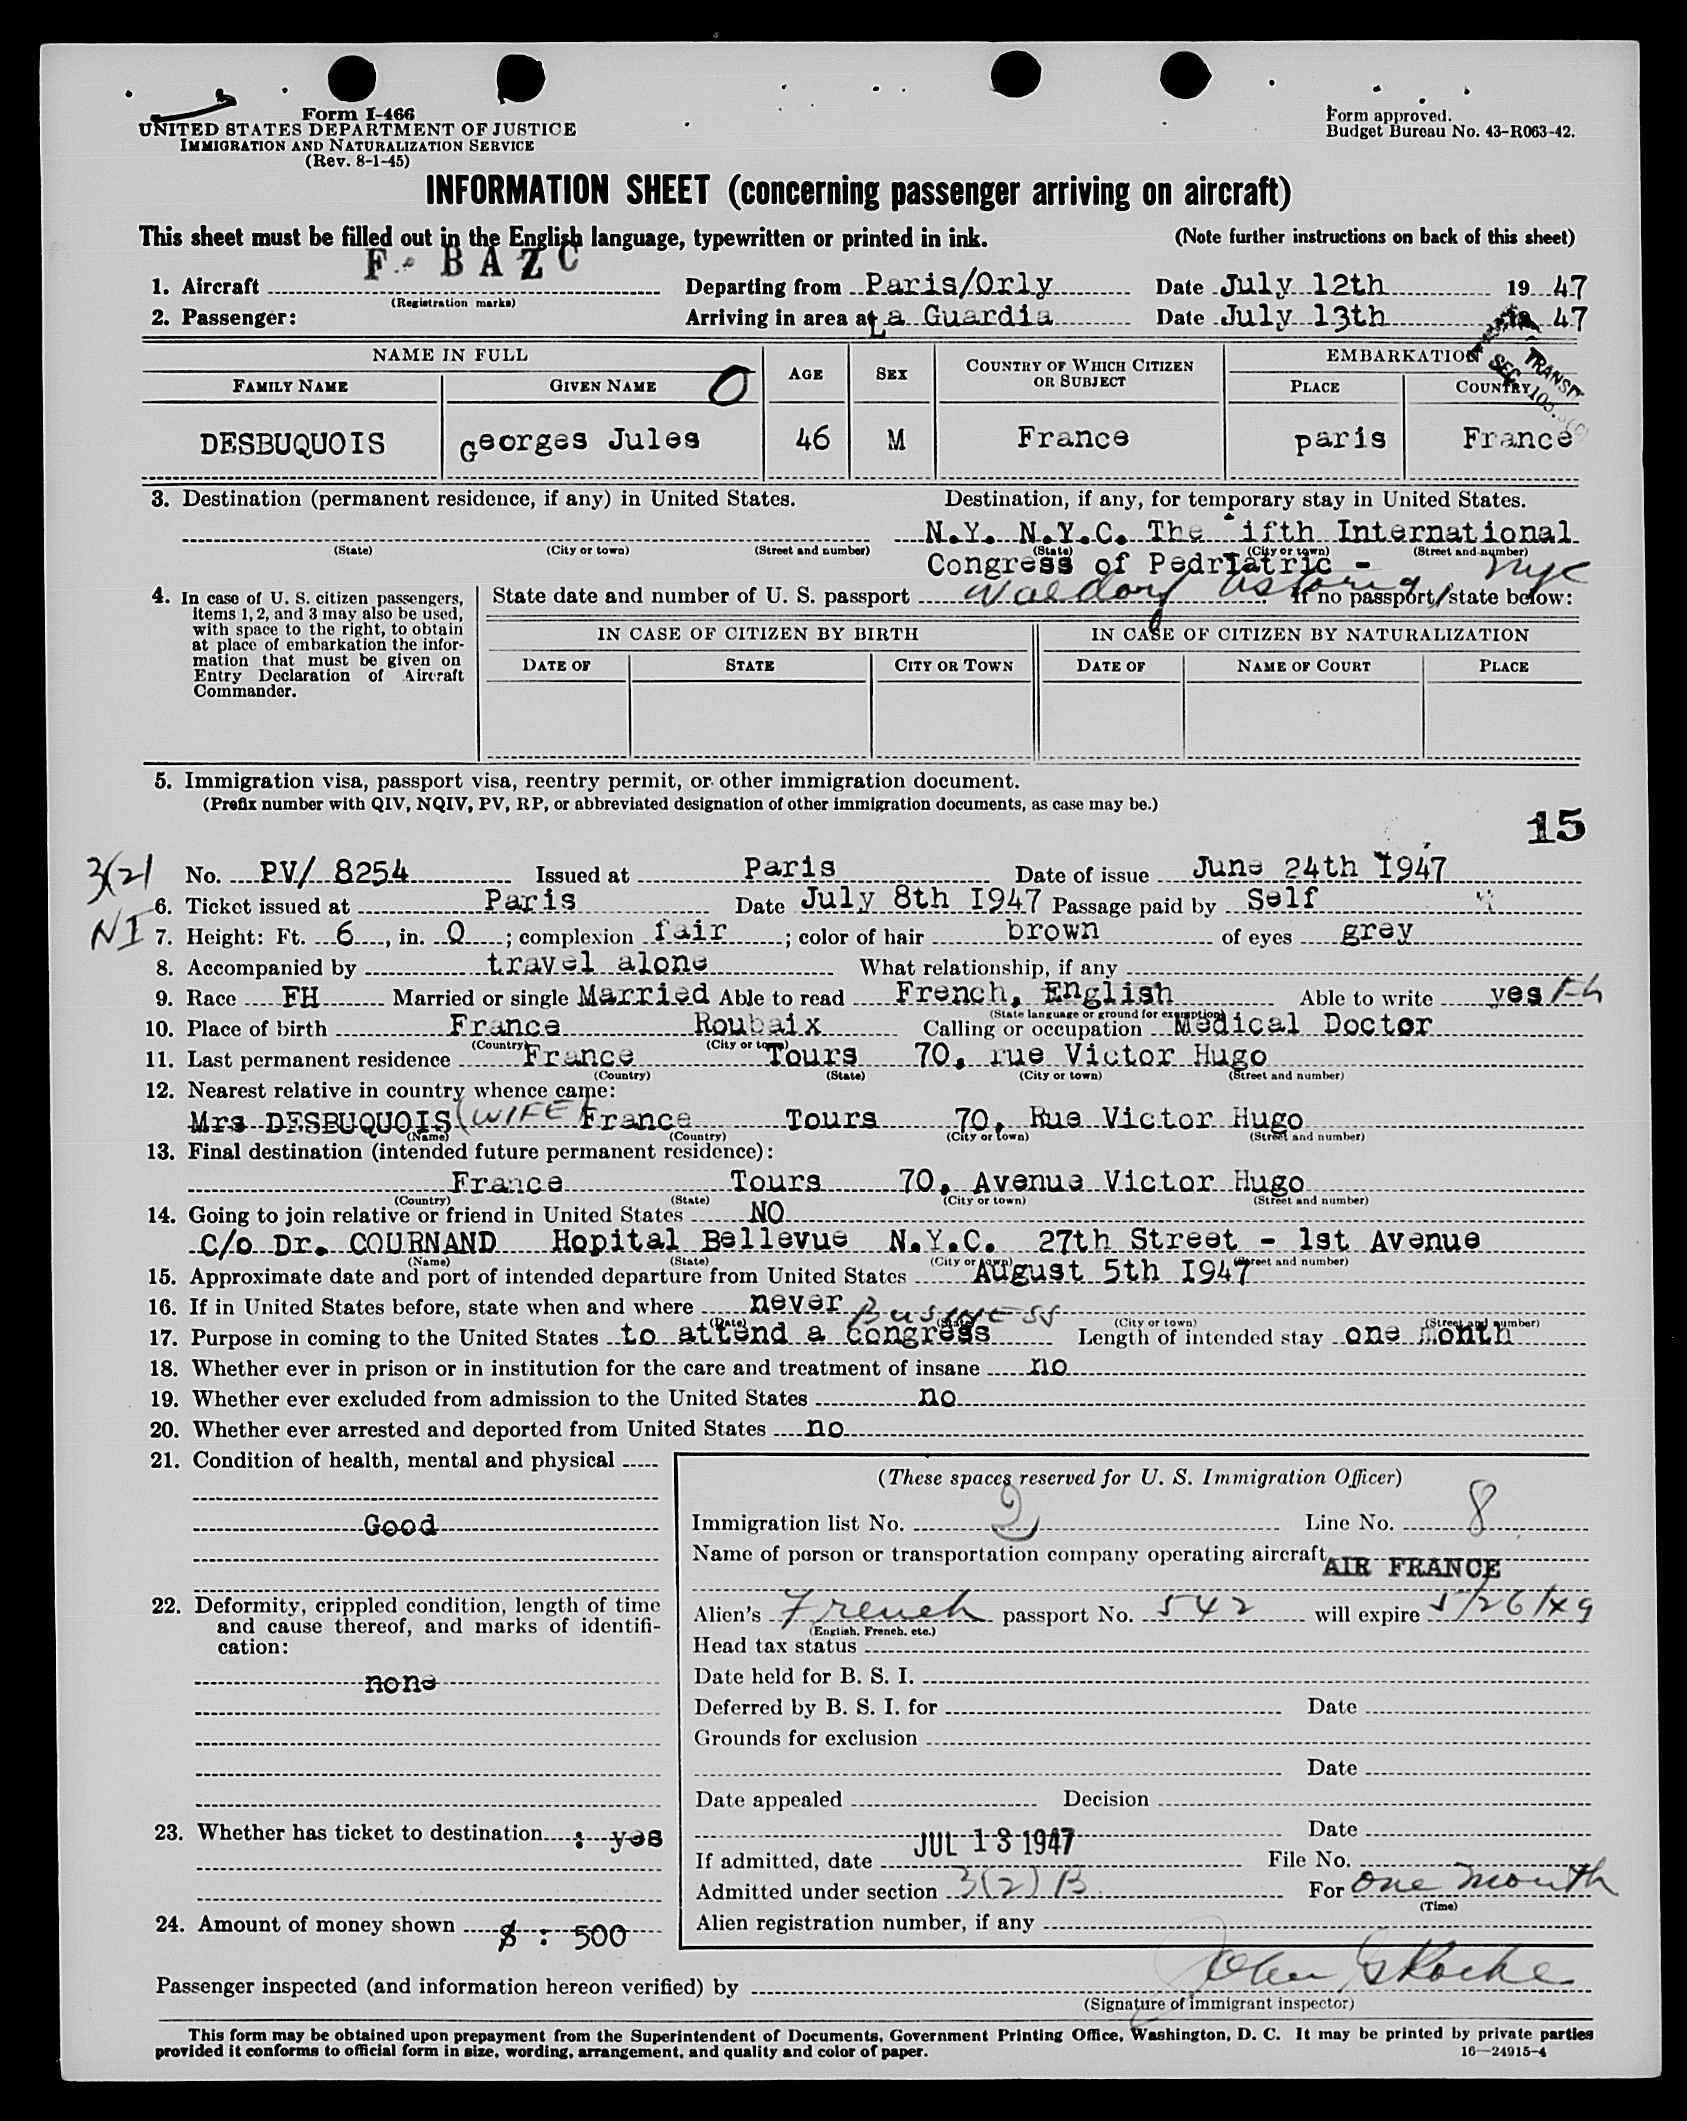 Form I-466
UNITED STATES DEPARTMENT OF JUSTICE
IMMIGRATION AND NATURALIZATION SERVICE
(Rev. 8-1-45)
Form approved.
Budget Bureau No. 43-R063-42.
INFORMATION SHEET (concerning passenger arriving on aircraft)
This sheet must be filled out in the English language, typewritten or printed in ink. (Note further instructions on back of this sheet)
1. Aircraft F-BAZC Departing from Paris/Orly Date July 12th 1947
(Registration marks)
2. Passenger: Arriving in area at La Guardia Date July 13th 1947
NAME IN FULL AGE SEX COUNTRY OF WHICH CITIZEN OR SUBJECT EMBARKATION
FAMILY NAME GIVEN NAME O PLACE COUNTRY
TRANSIT
SEC. 103.
DESBUQUOIS Georges Jules 46 M France paris France
3. Destination (permanent residence, if any) in United States. Destination, if any, for temporary stay in United States.
N.Y. N.Y.C. The ifth International
(State) (City or town) (Street and number) (State) (City or town) (Street and number)
Congress of Pedriatric - NYC
Waldorf Astoria
4. In case of U. S. citizen passengers, items 1, 2, and 3 may also be used, with space to the right, to obtain at place of embarkation the information that must be given on Entry Declaration of Aircraft Commander.
State date and number of U. S. passport If no passport, state below:
IN CASE OF CITIZEN BY BIRTH IN CASE OF CITIZEN BY NATURALIZATION
DATE OF STATE CITY OR TOWN DATE OF NAME OF COURT PLACE
5. Immigration visa, passport visa, reentry permit, or other immigration document.
(Prefix number with QIV, NQIV, PV, RP, or abbreviated designation of other immigration documents, as case may be.)
15
3(2)
No. PV/ 8254 Issued at Paris Date of issue June 24th I947
NI
6. Ticket issued at Paris Date July 8th I947 Passage paid by Self
7. Height: Ft. 6, in. 0; complexion fair; color of hair brown of eyes grey
8. Accompanied by travel alone What relationship, if any
9. Race FH Married or single Married Able to read French, English Able to write yes Fh
(State language or ground for exemption)
10. Place of birth France Roubaix Calling or occupation Medical Doctor
(Country) (City or town)
11. Last permanent residence France Tours 70, rue Victor Hugo
(Country) (State) (City or town) (Street and number)
12. Nearest relative in country whence came:
Mrs DESBUQUOIS (WIFE) France Tours 70, Rue Victor Hugo
(Name) (Country) (City or town) (Street and number)
13. Final destination (intended future permanent residence):
France Tours 70, Avenue Victor Hugo
(Country) (State) (City or town) (Street and number)
14. Going to join relative or friend in United States NO
C/o Dr. COURNAND Hopital Bellevue N.Y.C. 27th Street - 1st Avenue
(Name) (State) (City or town) (Street and number)
15. Approximate date and port of intended departure from United States August 5th I947
16. If in United States before, state when and where never
(Date) (State) (City or town) (Street and number)
BUSINESS
17. Purpose in coming to the United States to attend a congress Length of intended stay one month
18. Whether ever in prison or in institution for the care and treatment of insane no
19. Whether ever excluded from admission to the United States no
20. Whether ever arrested and deported from United States no
21. Condition of health, mental and physical
Good
22. Deformity, crippled condition, length of time and cause thereof, and marks of identification:
none
23. Whether has ticket to destination : yes
24. Amount of money shown $ : 500
(These spaces reserved for U. S. Immigration Officer)
Immigration list No. 2 Line No. 8
Name of person or transportation company operating aircraft AIR FRANCE
Alien's French passport No. 542 will expire 5/26/49
(English, French, etc.)
Head tax status
Date held for B. S. I.
Deferred by B. S. I. for Date
Grounds for exclusion
Date
Date appealed Decision
Date
If admitted, date JUL 13 1947 File No.
Admitted under section 3(2) B For one month
(Time)
Alien registration number, if any
Passenger inspected (and information hereon verified) by John
(Signature of immigrant inspector)
This form may be obtained upon prepayment from the Superintendent of Documents, Government Printing Office, Washington, D. C. It may be printed by private parties
provided it conforms to official form in size, wording, arrangement, and quality and color of paper. 16—24915-4